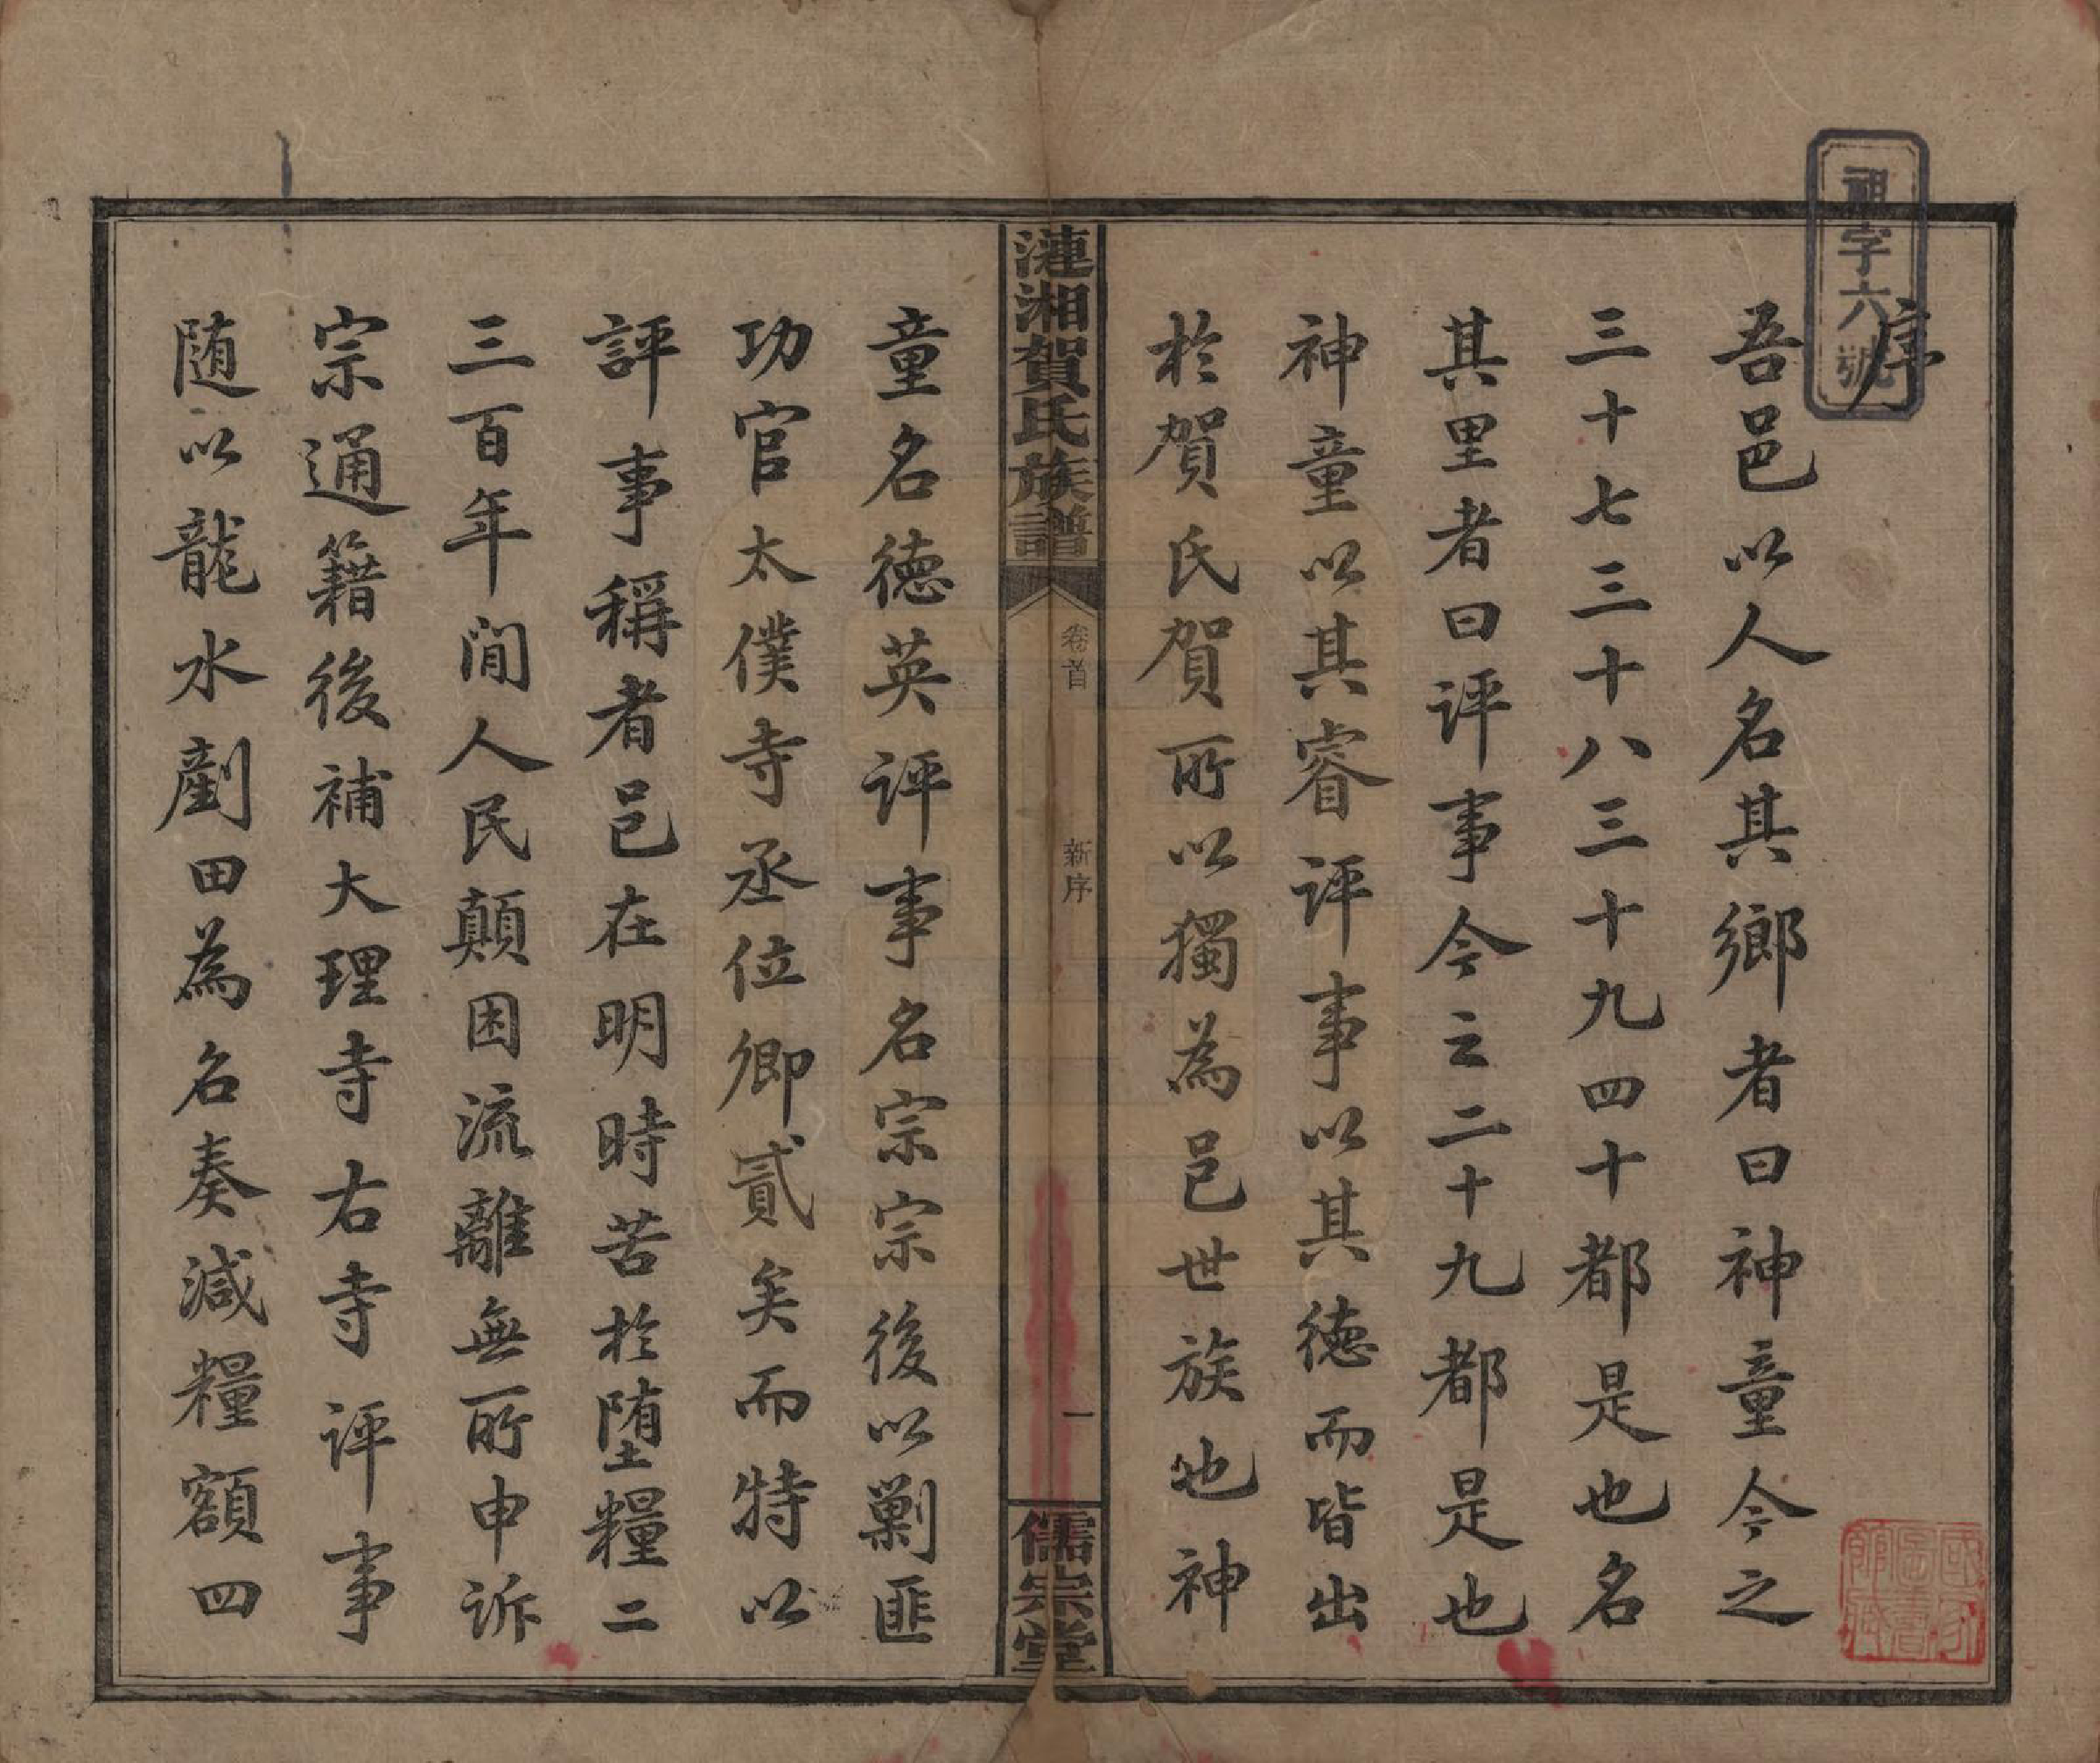 祖字六號
序
吾邑以人名其鄉者曰神童今之
三十七三十八三十九四十都是也名
其里者曰評事今之二十九都是也
神童以其睿評事以其德而皆出
於賀氏賀所以獨為邑世族也神
漣湘賀氏族譜
卷首
新序
一
儒宗堂
童名德英評事名宗宗後以剿匪
功官太僕寺丞位卿貳矣而特以
評事稱者邑在明時苦於墮糧二
三百年間人民顛困流離無所申訴
宗通籍後補大理寺右寺評事
随以龍水劃田為名奏減糧額四